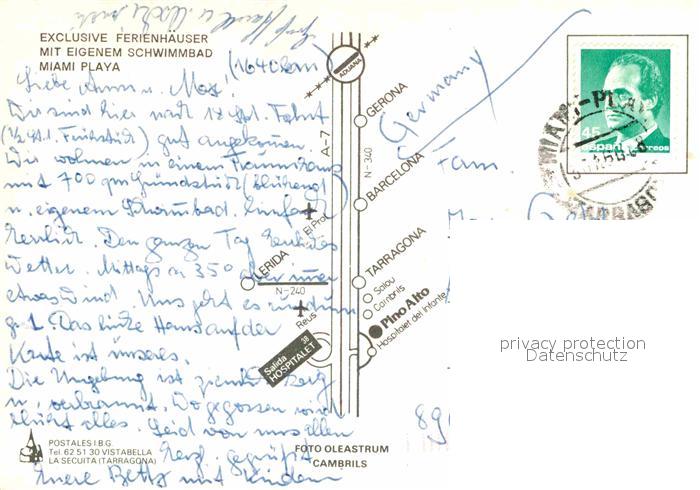 EXCLUSIVE FERIENHÄUSER
MIT EIGENEM SCHWIMMBAD
MIAMI PLAYA
(1640 km)
Liebe Ann u. Max!
Wir sind hier nach 18 Std. Fahrt
(½ Std. Frühstück) gut angekommen.
Wir wohnen in einem Traumhaus
mit 700 qm Grundstück (blühend
u. eigenem Schwimmbad. Einfach
herrlich. Den ganzen Tag
Wetter. Mittags 35° aber immer
etwas Wind. Uns geht es rundum
gut. Das linke Haus auf der
Karte ist unseres.
Die Umgebung ist ziemlich
u. verbrannt. Wo gegossen wird
blüht alles. Seid von uns allen
herzl. gegrüßt
Eure Betty mit Kindern
ADUANA
GERONA
A-7
N-340
BARCELONA
El Prat
LERIDA
N-240
TARRAGONA
Salou
Cambrils
Pino Alto
Hospitalet del Infante
Reus
Salida 38
HOSPITALET
POSTALES I.B.G.
Tel. 62 51 30 VISTABELLA
LA SECUITA (TARRAGONA)
FOTO OLEASTRUM
CAMBRILS
Germany
Fam.
89
45
España correos
MIAMI-PLAYA
privacy protection
Datenschutz